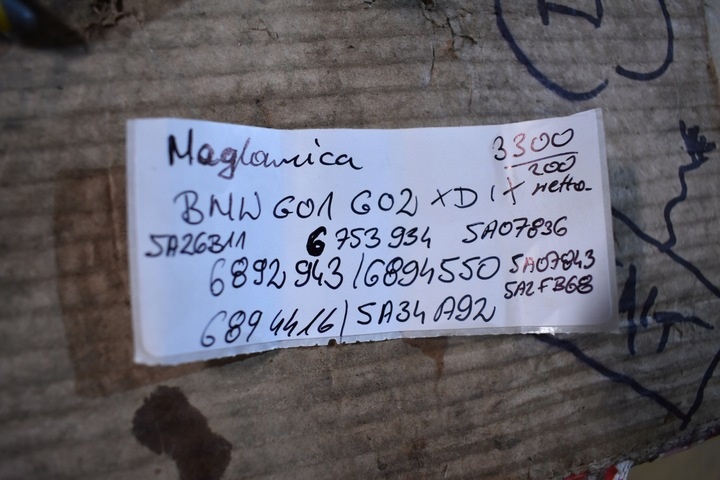 Maglownica
3300
200
netto-
BMW G01 G02 XD i X
5A26B11 6 753 934 5A07836
6892943/6894550 5A07843
5A2FB68
6894416/5A34A92